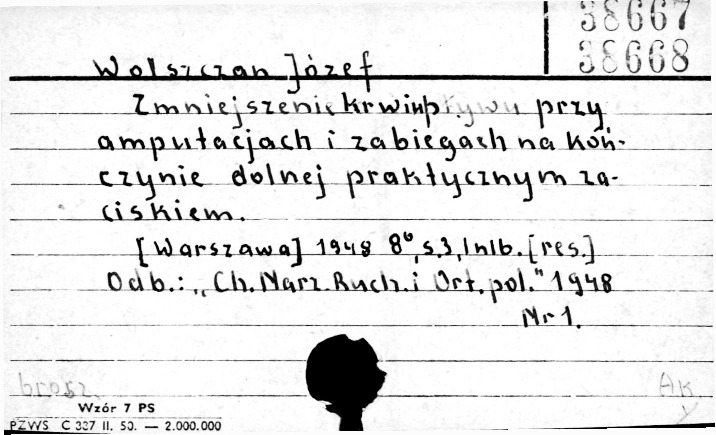 38667
38668
Wolszczan Józef
Zmniejszenie krwiupływu przy
amputacjach i zabiegach na koń-
czynie dolnej praktycznym za-
ciskiem.
[Warszawa] 1948 8°, s. 3, 1 nlb. [res.]
Odb.: „Ch. Narz. Ruch. i Ort. pol." 1948
Nr 1.
brosz.
Ak
Wzór 7 PS
PZWS C 337 II. 50. — 2.000.000